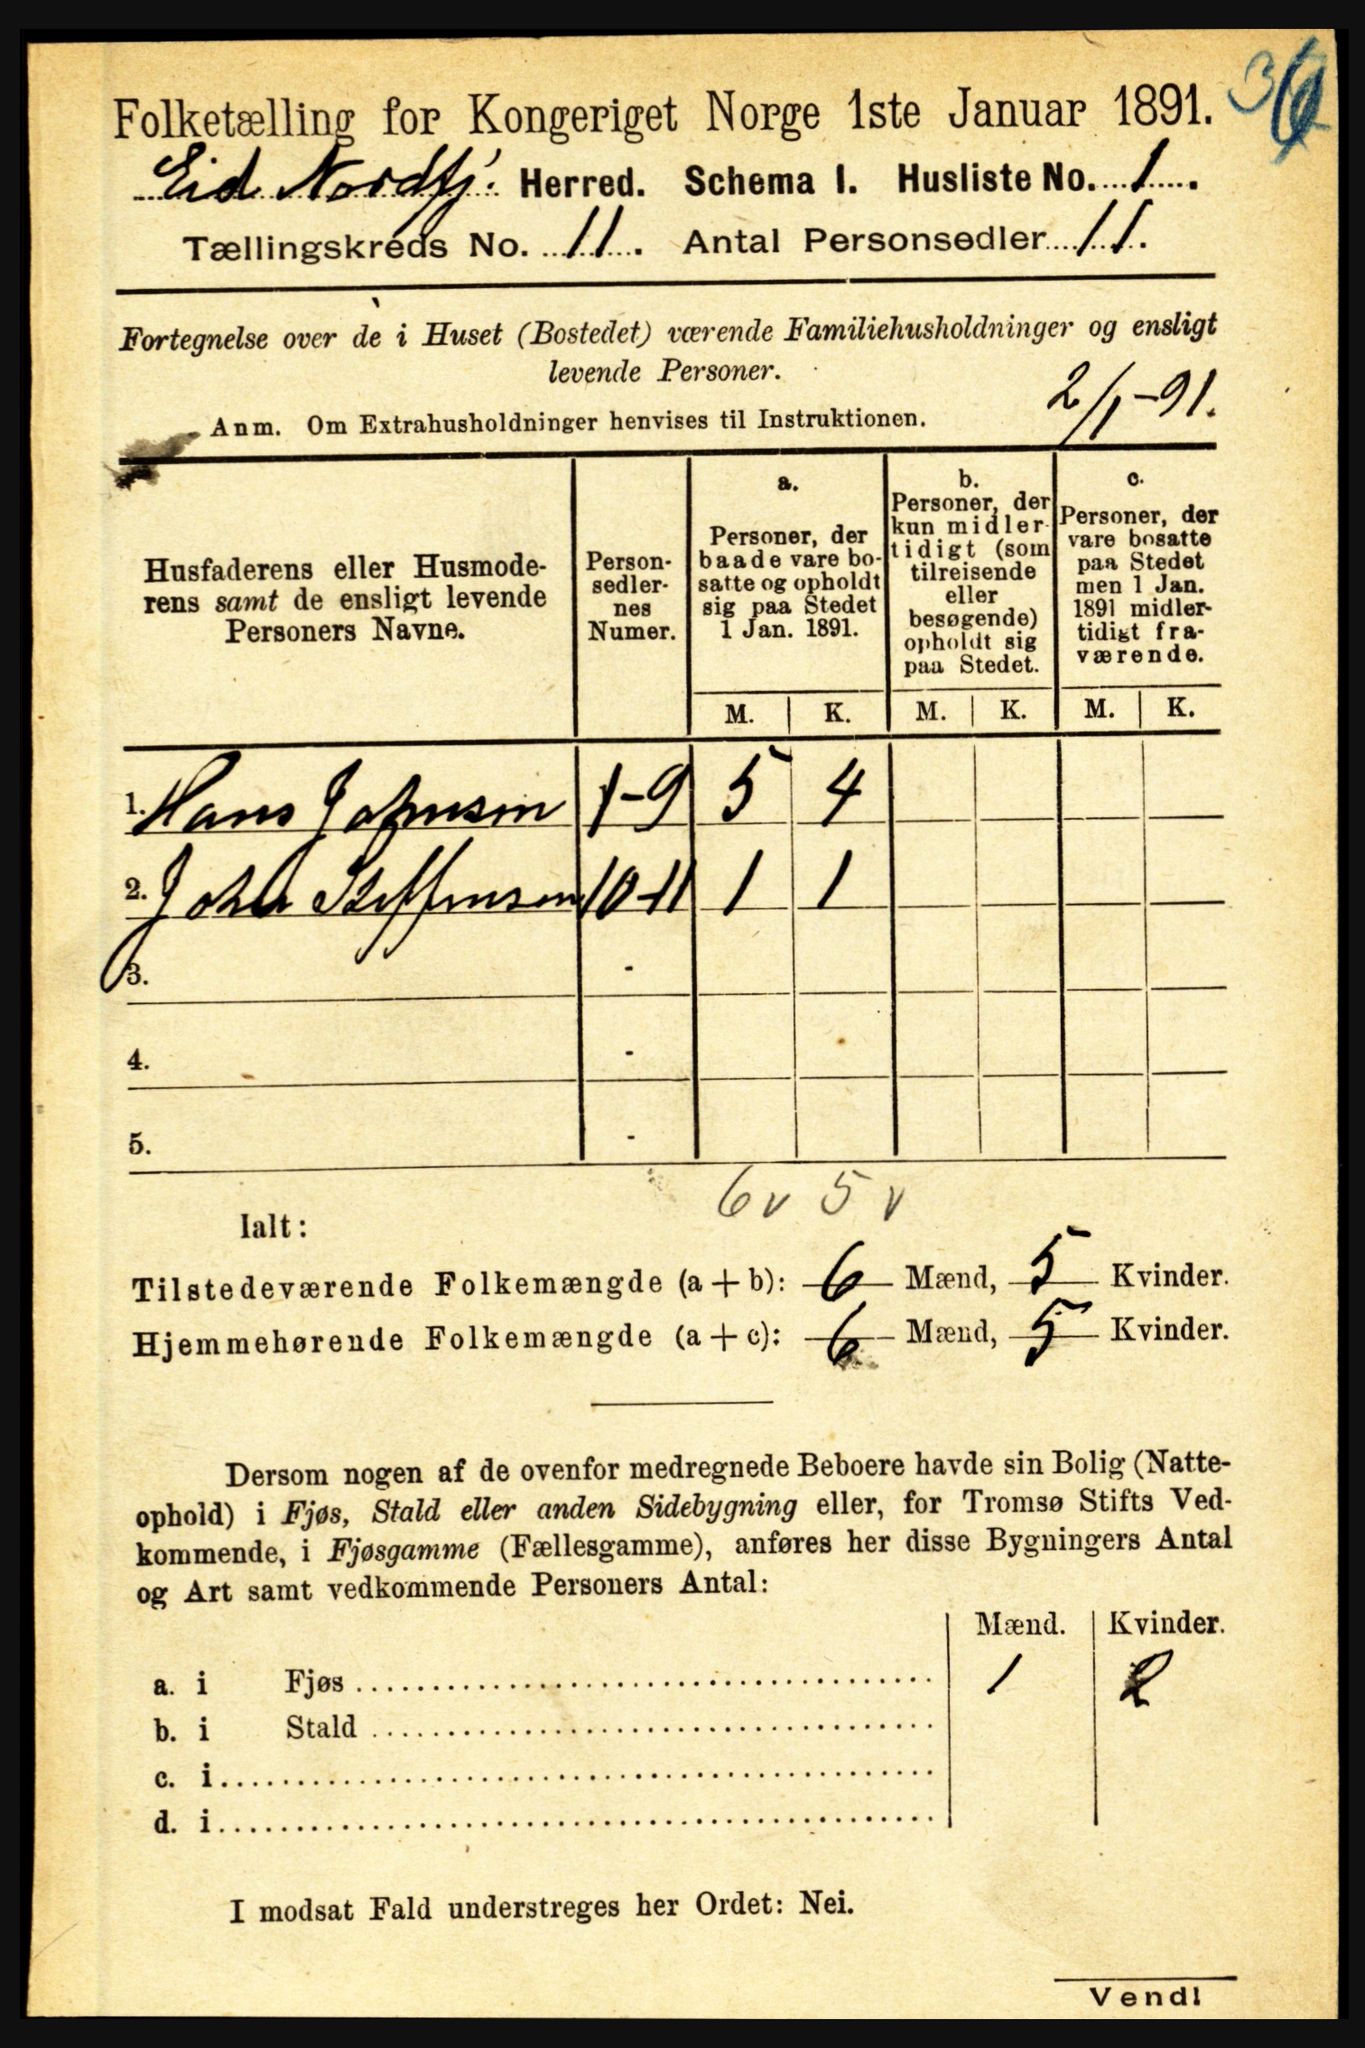 Folketælling for Kongeriget Norge 1ste Januar 1891.
Eid Nordfj. Herred. Schema I. Husliste No. 1.
Tællingskreds No. 11. Antal Personsedler 11.
Fortegnelse over de i Huset (Bostedet) værende Familiehusholdninger og ensligt
levende Personer.
2/1-91.
Anm. Om Extrahusholdninger henvises til Instruktionen.
Husfaderens eller Husmode-
rens samt de ensligt levende
Personers Navne.
Person-
sedler-
nes
Numer.
a.
Personer, der
baade vare bo-
satte og opholdt
sig paa Stedet
1 Jan. 1891.
b.
Personer, der
kun midler-
tidigt (som
tilreisende
eller
besøgende)
opholdt sig
paa Stedet.
c.
Personer, der
vare bosatte
paa Stedet
men 1 Jan.
1891 midler-
tidigt fra-
værende.
M. K. M. K. M. K.
1. Hans Johnsen 1-9 5 4
2. John Steffensen 10-11 1 1
3. -
4. -
5. -
6 v 5 v
Ialt:
Tilstedeværende Folkemængde (a + b): 6 Mænd, 5 Kvinder.
Hjemmehørende Folkemængde (a + c): 6 Mænd, 5 Kvinder.
Dersom nogen af de ovenfor medregnede Beboere havde sin Bolig (Natte-
ophold) i Fjøs, Stald eller anden Sidebygning eller, for Tromsø Stifts Ved-
kommende, i Fjøsgamme (Fællesgamme), anføres her disse Bygningers Antal
og Art samt vedkommende Personers Antal:
Mænd. Kvinder.
a. i Fjøs 1 2
b. i Stald
c. i
d. i
I modsat Fald understreges her Ordet: Nei.
Vend!